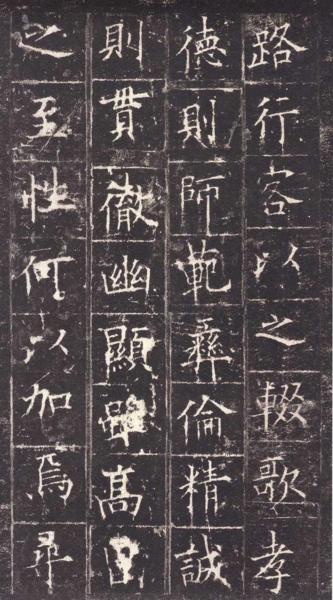 路行客以之輟歌孝
德則師範彝倫精誠
則貫徹幽顯雖高
之至性何以加焉尋